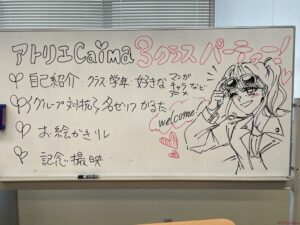 アトリエCaima 3クラスパーティー!
自己紹介・クラス学年 好きな マンガ キャラ アニメ など
グループ対抗 名ゼリフ かるた
お絵かきリレー
記念撮映
welcome